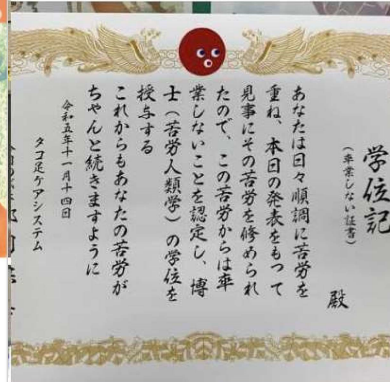 学位記
(卒業しない証書)
殿
あなたは日々順調に苦労を
重ね、本日の発表をもって
見事にその苦労を修められ
たので、この苦労からは卒
業しないことを認定し、博
士（苦労人類学）の学位を
授与する
これからもあなたの苦労が
ちゃんと続きますように
令和五年十一月十四日
タコ足ケアシステム